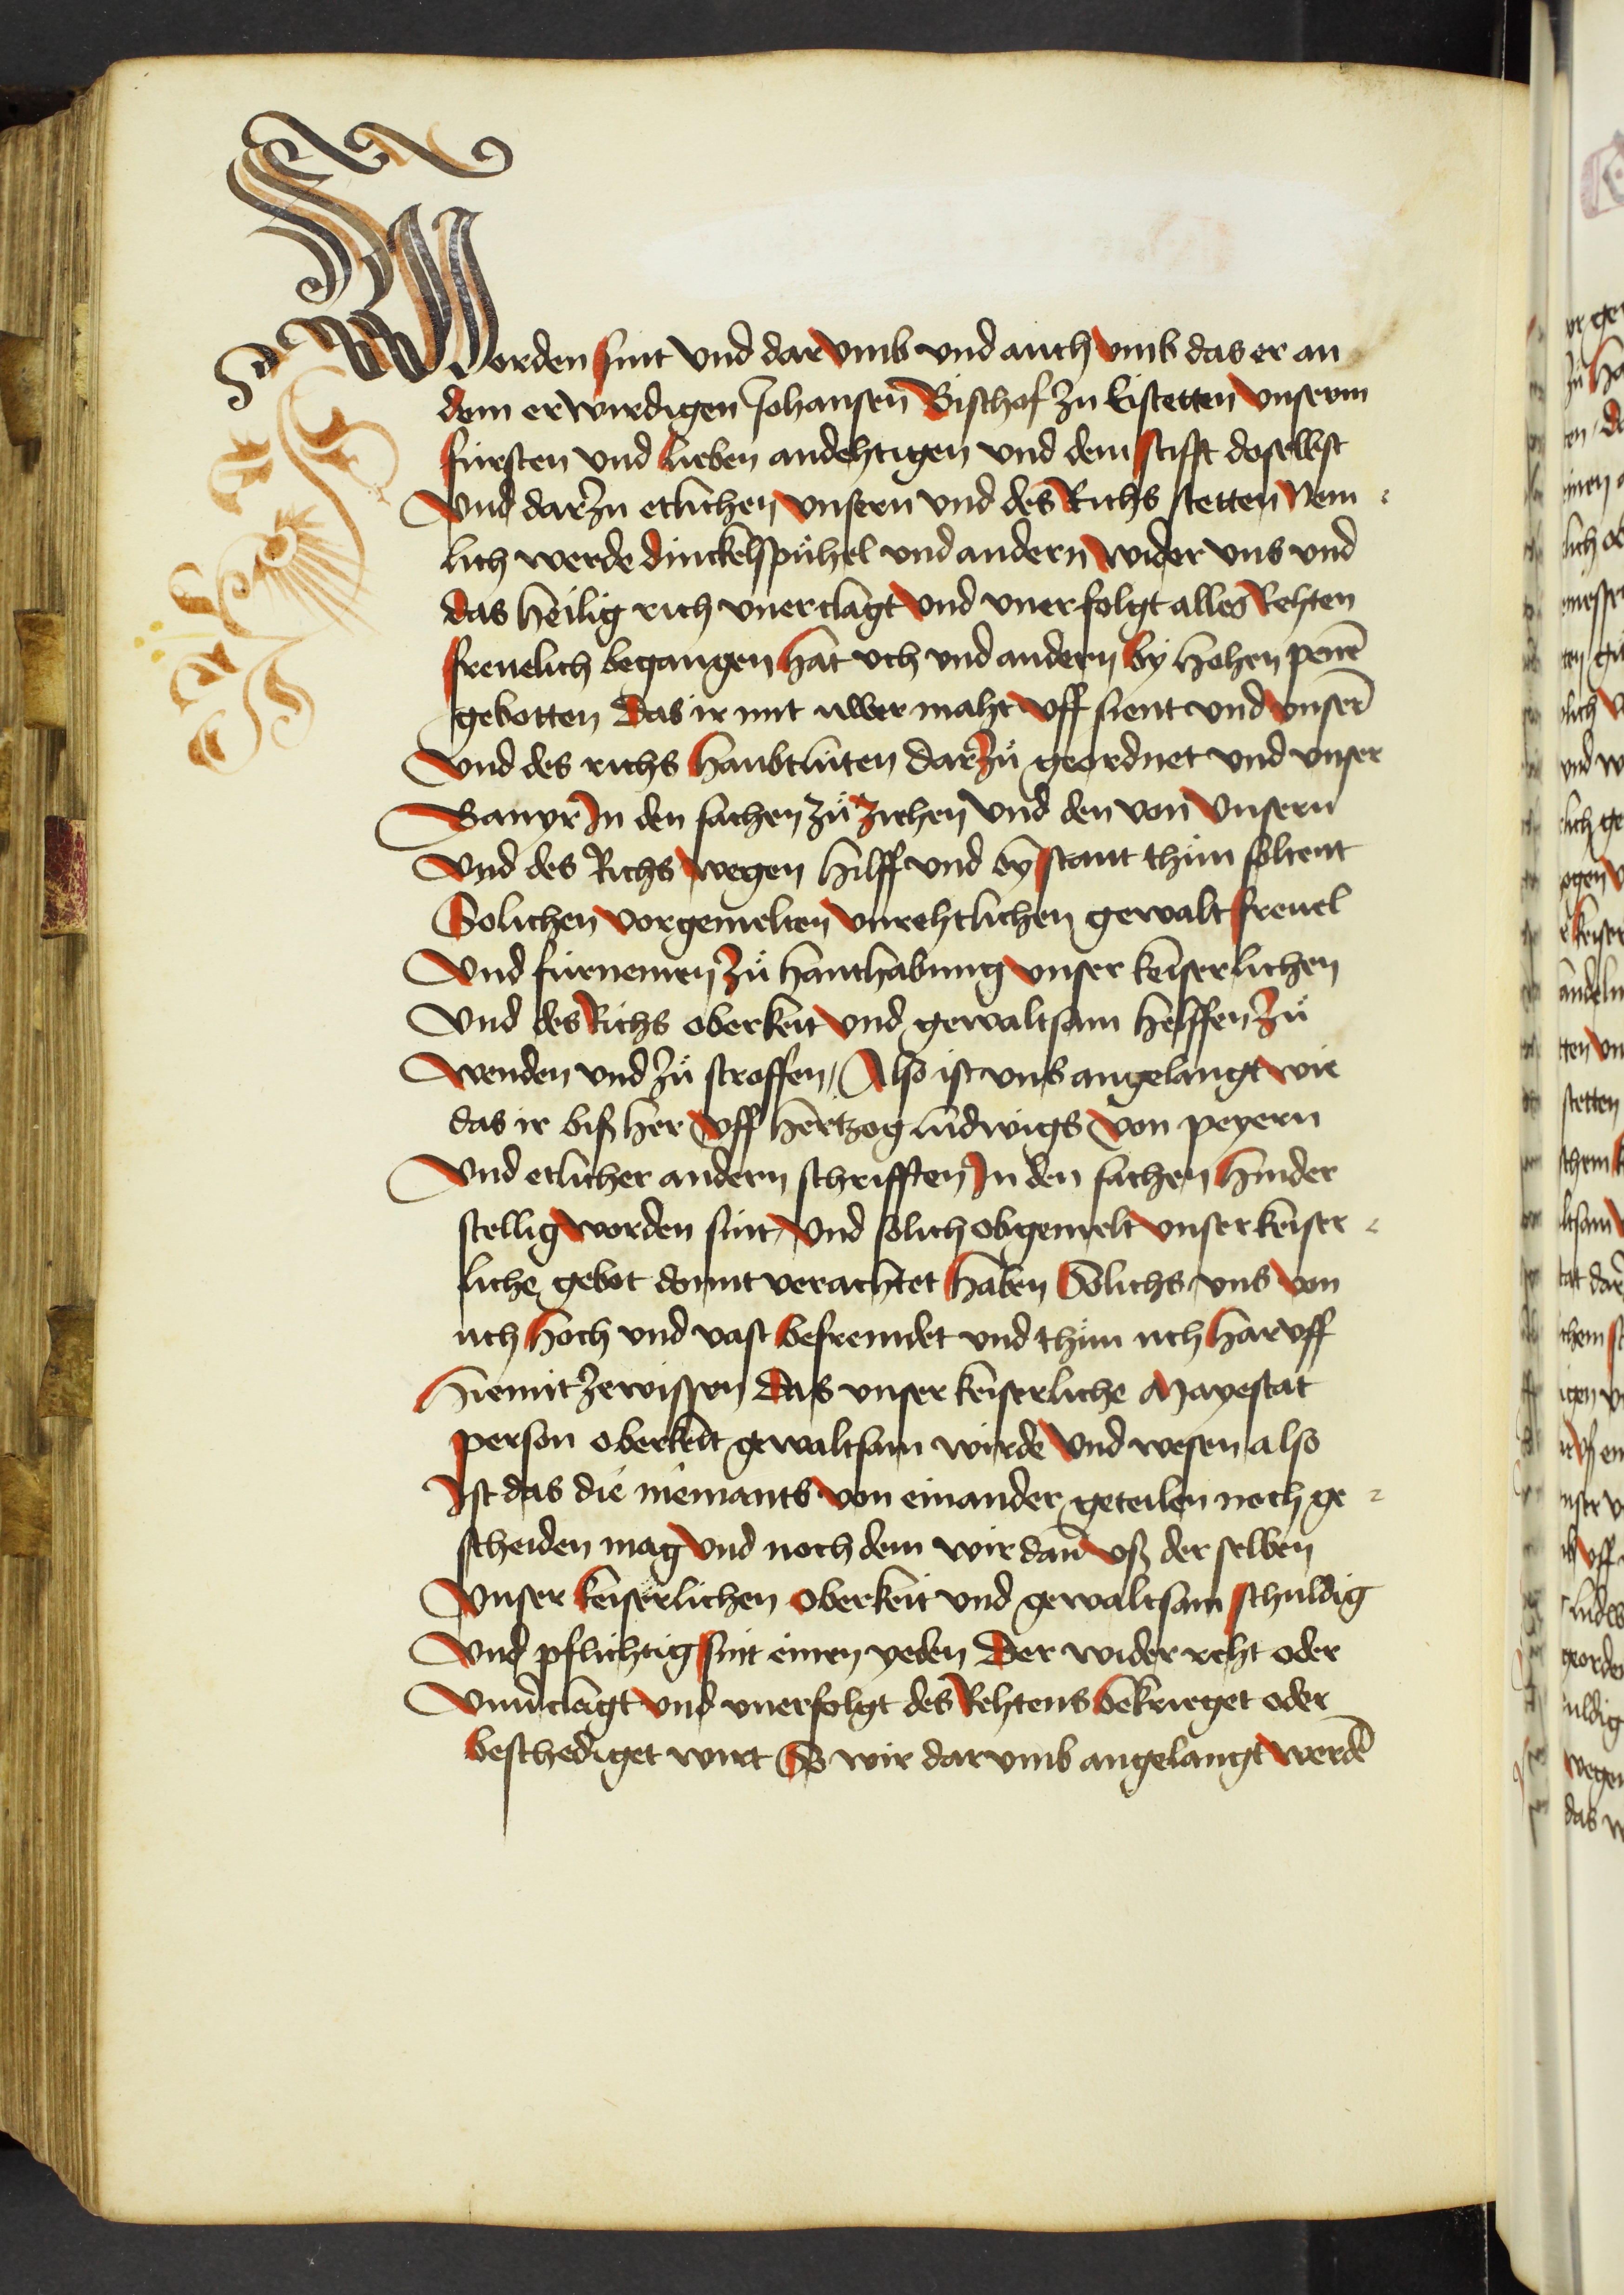 Worden sint vnd dar vmb vnd auch vmb das er an
dem erwirdigen Johansen Bischof zu Eistetten vnserm
fürsten vnd lieben andehtigen vnd dem stifft doselbst
Vnd darzu etlichen vnsern vnd des Richs stetten Nem⸗
lich werde dinckelspühel vnd andern wider vns vnd
das heilig rich vnerclagt vnd vneruolgt alles Rehten
freuelich begangen hat vch vnd andern by hohen penē
gebotten Das ir mit uwer maht vff sient vnd vnserē
Vnd des richs haubtluten Darzů geordnet vnd vnser
Banyr In den sachen zů ziehen Vnd den von Vnsern
Vnd des Richs wegen hilff vnd bystant thůn soltent
Solichen vorgemelten vnrehtlichen gewalt freuel
Vnd fürnemen zů hanthabung vnser keiserlichen
Vnd des Richs oberkeit vnd gewaltsam helffen zů
Wenden vnd zů stroffen, Also ist vns angelangt wie
das ir bißher vff hertzog ludwigs von peyern
Vnd etlicher andern schrifften In den sachen hinder
stellig worden sint, Vnd solich obgemelt vnser keiser⸗
liche gebot domit verachtet haben Solichs vns von
uch hoch vnd vast befremdet vnd thůn uch har vff
hiemit zewissen Das vnser keiserliche Mayestat
person oberkeit gewaltsam wirde Vnd wesen also
Ist das die niemants von einander geteilen noch ge⸗
scheiden mag Vnd noch dem wir dañ vß der selben
Vnser keiserlichen Oberkeit vnd gewaltsam schuldig
Vnd pflichtig sint einen yeden Der wider reht oder
Vnuerclagt Vnd vneruolgt des Rehtens bekrieget oder
beschediget wurt So wir dar vmb angelangt werdē